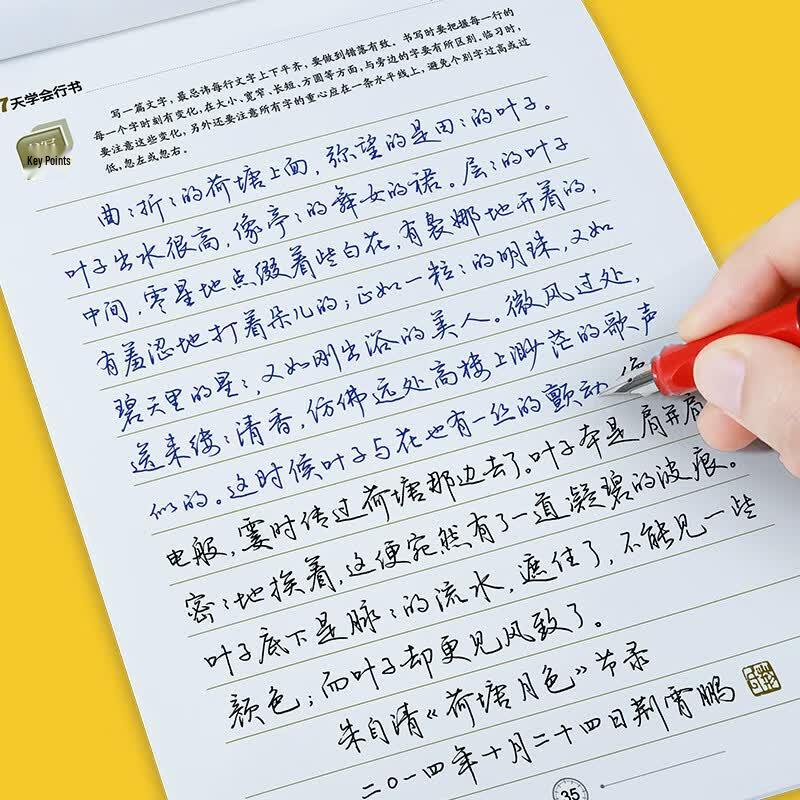 7天学会行书
Key Points
写一篇文字，最忌讳每行文字上下平齐，要做到错落有致。书写时要把握每一行的
每一个字时刻有变化，在大小、宽窄、长短、方圆等方面，与旁边的字要有所区别。临习时，
要注意这些变化，另外还要注意所有字的重心应在一条水平线上，避免个别字过高或过
低、忽左或忽右。
曲：折：的荷塘上面，弥望的是田：的叶子。
叶子出水很高，像亭：的舞女的裙。层：的叶子
中间，零星地点缀着些白花，有袅娜地开着的，
有羞涩地打着朵儿的；正如一粒：的明珠，又如
碧天里的星：，又如刚出浴的美人。微风过处，
送来缕：清香，仿佛远处高楼上渺茫的歌声
似的。这时候叶子与花也有一丝的颤动
电般，霎时传过荷塘那边去了。叶子本是肩并肩
密：地挨着，这便宛然有了一道凝碧的波痕。
叶子底下是脉：的流水，遮住了，不能见一些
颜色；而叶子却更见风致了。
朱自清《荷塘月色》节录
二〇一四年十月二十四日荆霄鹏
35